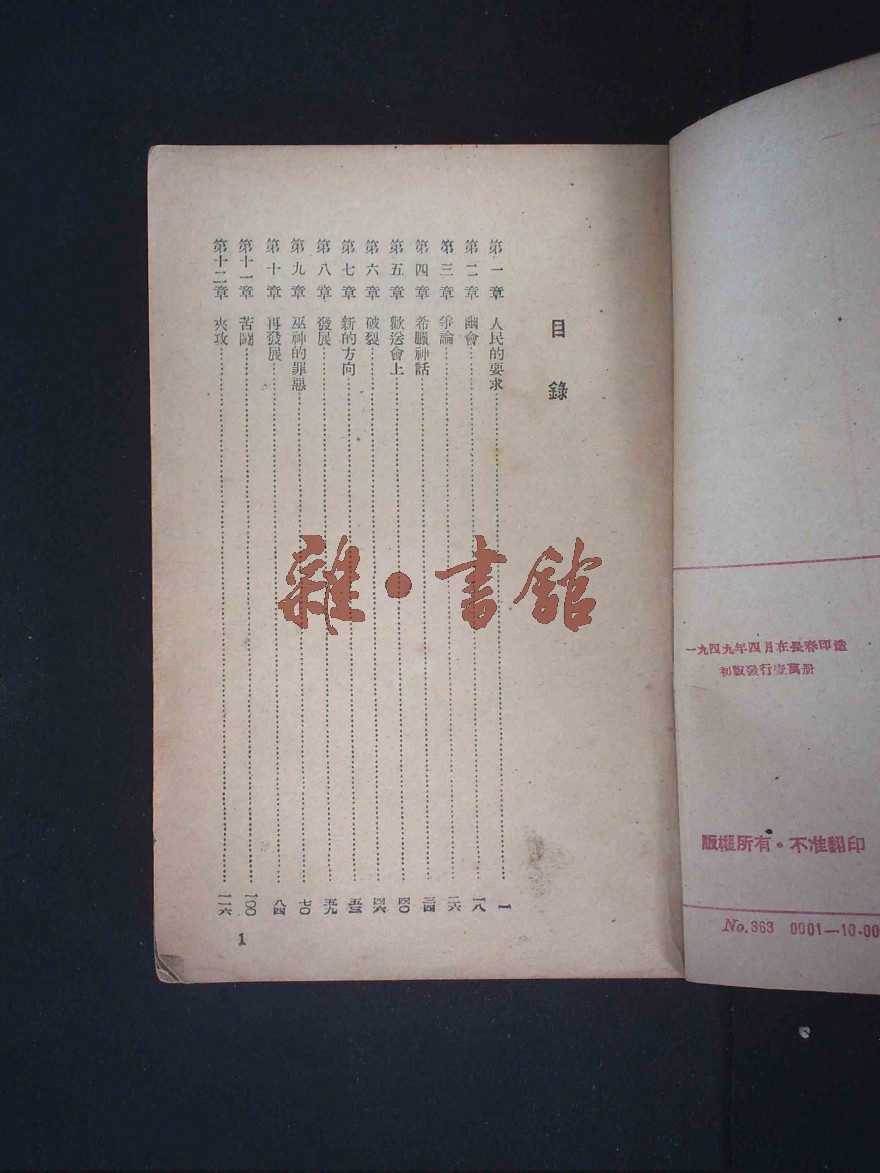 目錄
第一章 人民的要求……一
第二章 幽會……一八
第三章 爭論……二六
第四章 希臘神話……三四
第五章 歡送會上……四〇
第六章 破裂……四六
第七章 新的方向……五三
第八章 發展……五九
第九章 巫神的罪惡……七〇
第十章 再發展……八四
第十一章 苦鬭……一〇〇
第十二章 夾攻……一一六
1
雜·書館
一九四九年四月在長春印造
初版發行壹萬册
版權所有·不准翻印
No.363 0001—10.00